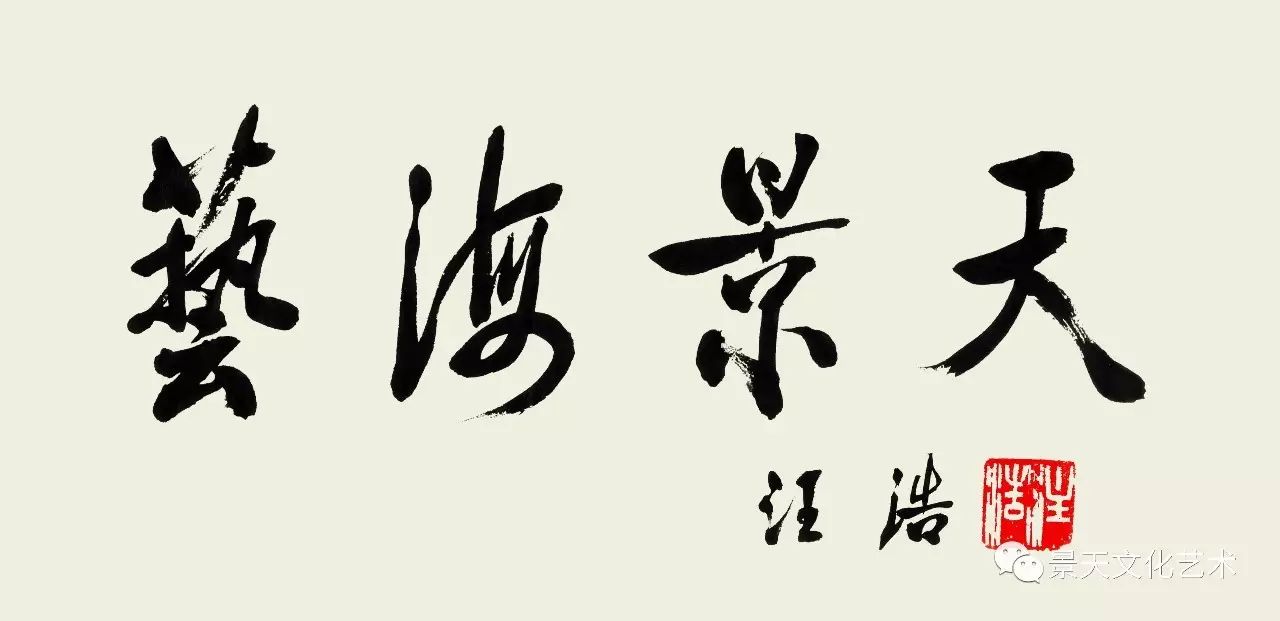 藝海景天
汪浩
汪浩
景天文化艺术